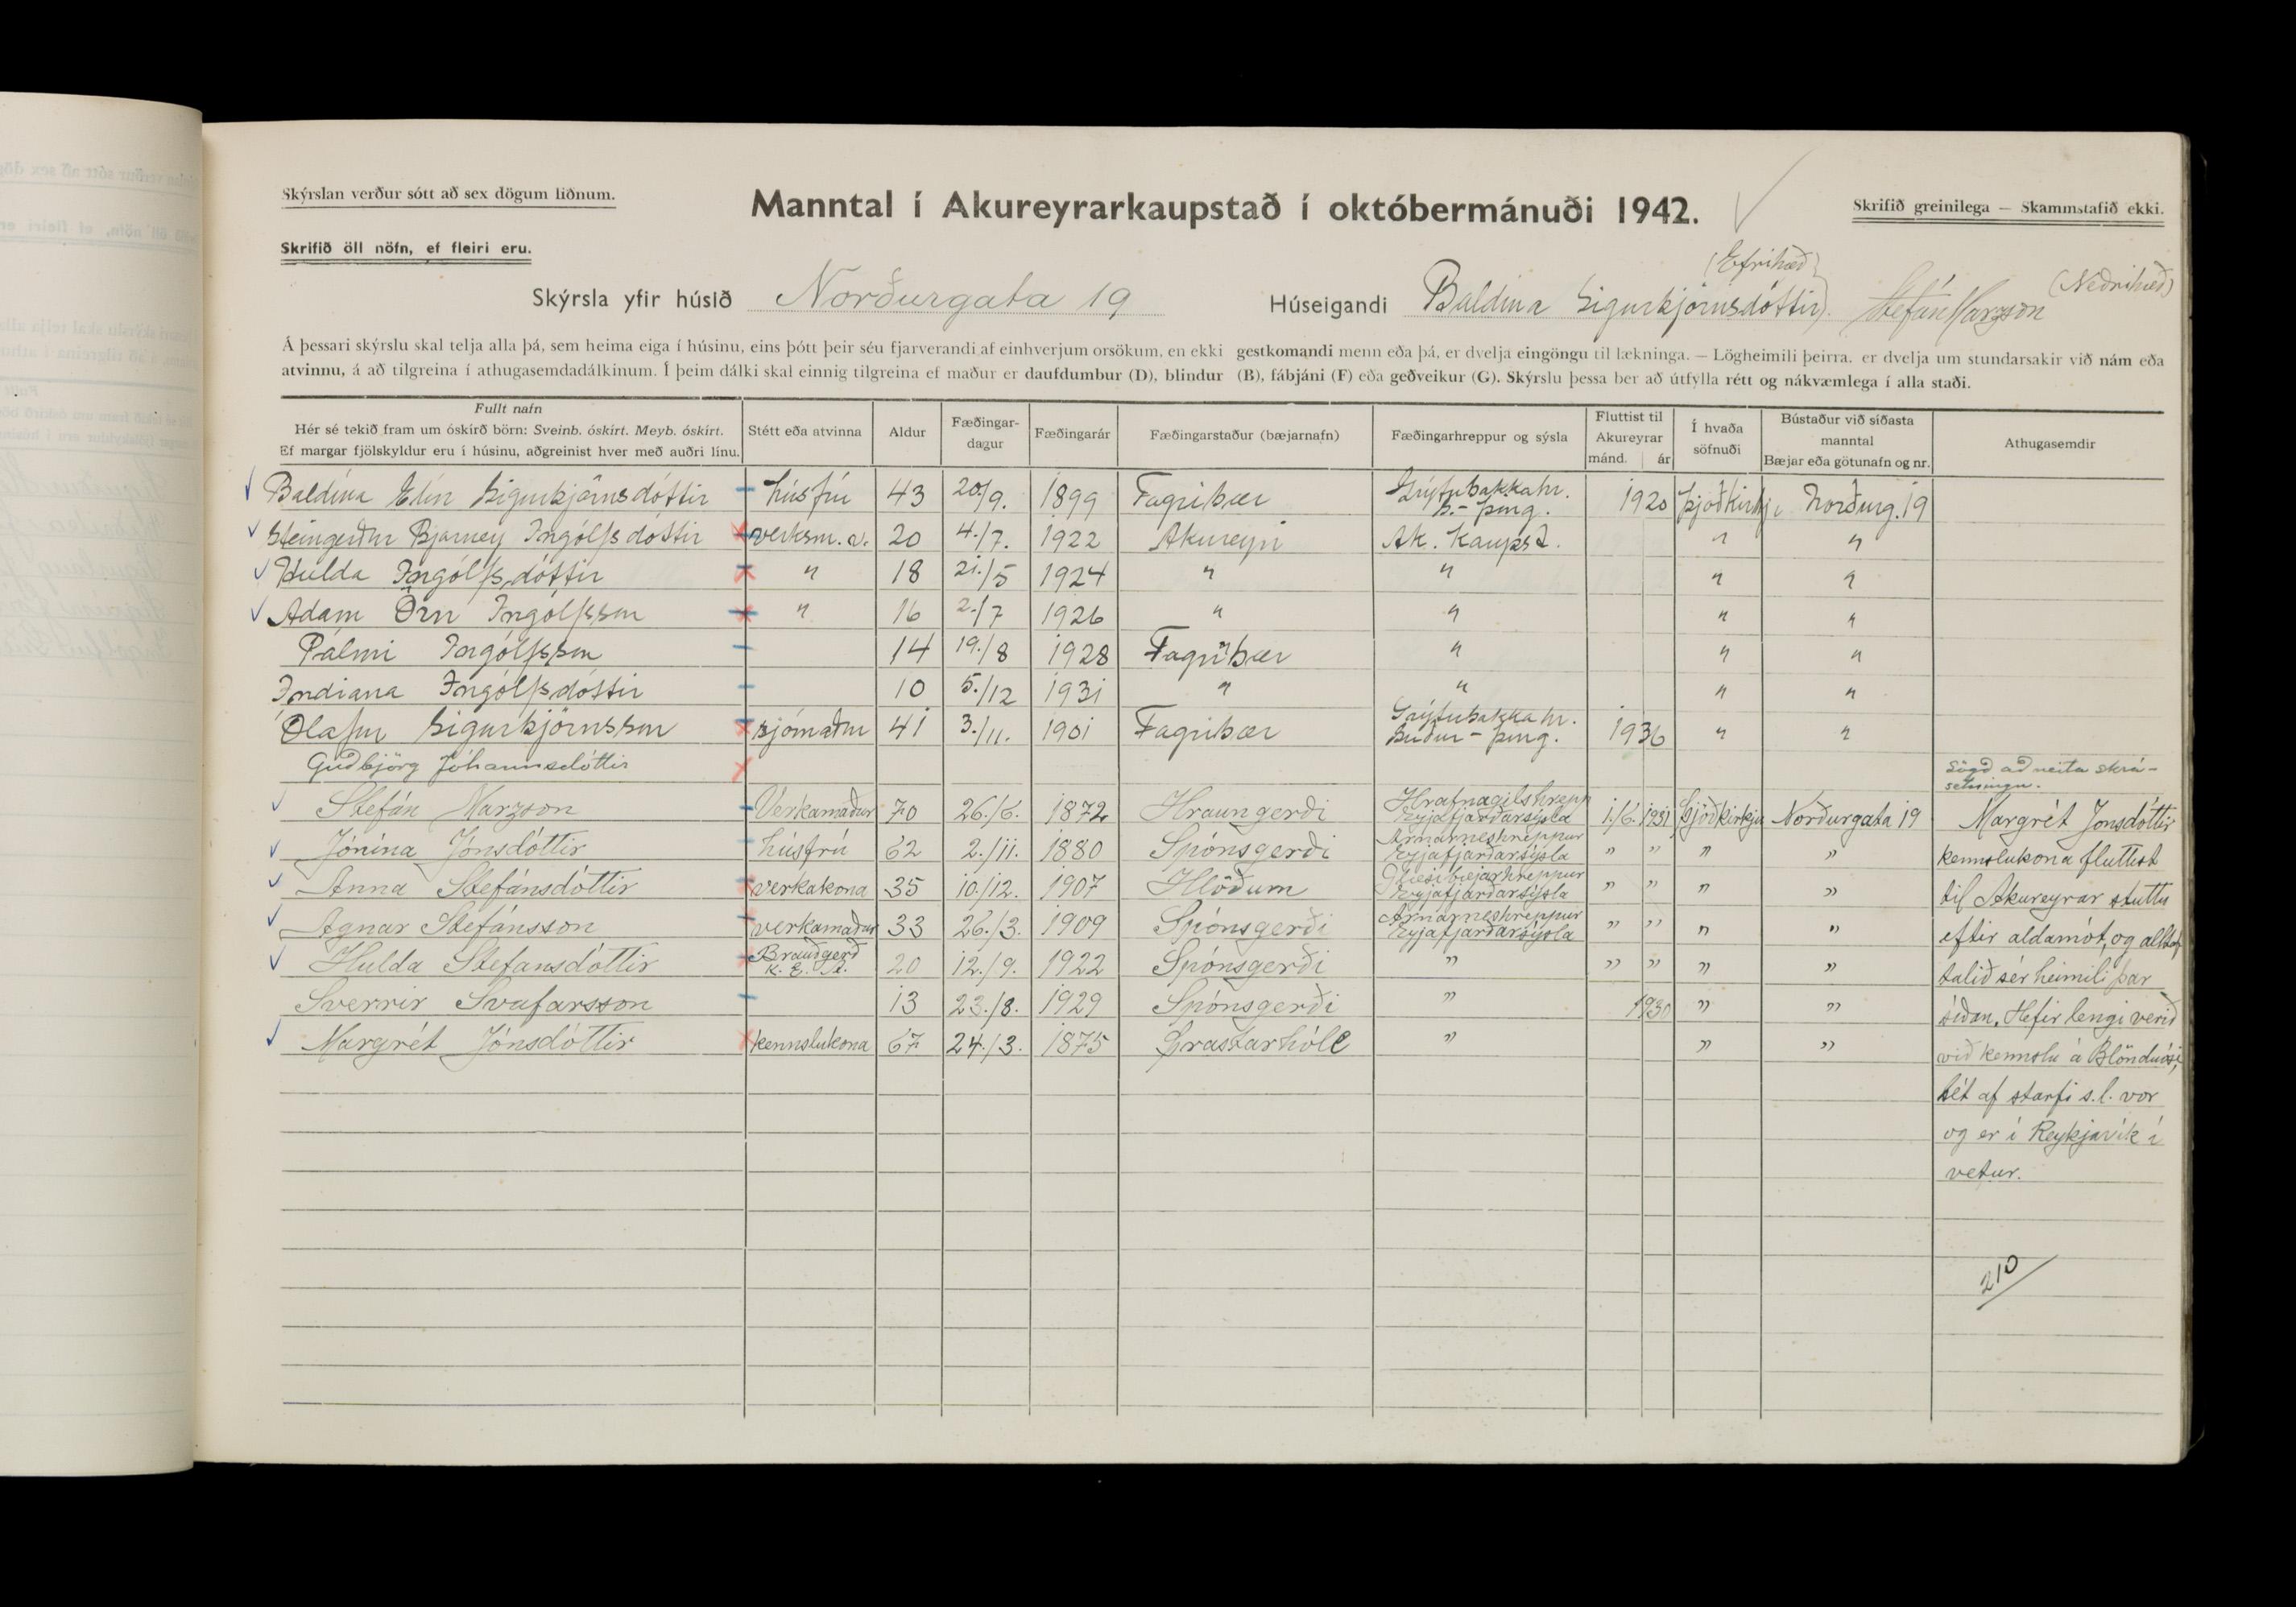 Skýrslan verður sótt að sex dögum liðnum.
Manntal í Akureyrarkaupstað í októbermánuði 1942.
Skrifið greinilega — Skammstafið ekki.
Skrifið öll nöfn, ef fleiri eru.
Skýrsla yfir húsið Norðurgata 19 Húseigandi Baldína Sigurbjörnsdóttir (Efrihæð) Stefán Marzson (Neðrihæð)
Á þessari skýrslu skal telja alla þá, sem heima eiga í húsinu, eins þótt þeir séu fjarverandi af einhverjum orsökum, en ekki gestkomandi menn eða þá, er dvelja eingöngu til lækninga. — Lögheimili þeirra, er dvelja um stundarsakir við nám eða
atvinnu, á að tilgreina í athugasemdadálkinum. Í þeim dálki skal einnig tilgreina ef maður er daufdumbur (D), blindur (B), fábjáni (F) eða geðveikur (G). Skýrslu þessa ber að útfylla rétt og nákvæmlega í alla staði.
Fullt nafn
Hér sé tekið fram um óskírð börn: Sveinb. óskírt. Meyb. óskírt.
Ef margar fjölskyldur eru í húsinu, aðgreinist hver með auðri línu.
Stétt eða atvinna
Aldur
Fæðingar-
dagur
Fæðingarár
Fæðingarstaður (bæjarnafn)
Fæðingarhreppur og sýsla
Fluttist til
Akureyrar
mánd. ár
Í hvaða
söfnuði
Bústaður við síðasta
manntal
Bæjar eða götunafn og nr.
Athugasemdir
Baldína Elín Sigurbjörnsdóttir húsfrú 43 20/9. 1899 Fagribær Grýtubakkahr. S.-Þing. 1920 Þjóðkirkj. Norðurg. 19
Steingerður Bjarney Ingólfsdóttir verksm. v. 20 4./7. 1922 Akureyri Ak. Kaupst. " "
Hulda Ingólfsdóttir " 18 21./5 1924 " " " "
Adam Örn Ingólfsson " 16 2./7 1926 " " " "
Pálmi Ingólfsson 14 19./8 1928 Fagribær " " "
Indiana Ingólfsdóttir 10 5./12 1931 " " " "
Ólafur Sigurbjörnsson sjómaður 41 3./11. 1901 Fagribær Grýtubakkahr. Suður-Þing. 1936 " "
Guðbjörg Jóhannsdóttir Sögð að neita skrá-
setningu.
Stefán Marzson Verkamaður 70 26./6. 1872 Hraungerði Hrafnagilshrepp Eyjafjarðarsýsla 1./6. 1931 Þjóðkirkju Norðurgata 19 Margrét Jónsdóttir
Jónína Jónsdóttir húsfrú 62 2./11. 1880 Spónsgerði Arnarneshreppur Eyjafjarðarsýsla " " " " kennslukona fluttist
Anna Stefánsdóttir verkakona 35 10./12. 1907 Hlöðum Glæsibæjarhreppur Eyjafjarðarsýsla " " " " til Akureyrar stuttu
Agnar Stefánsson verkamaður 33 26./3. 1909 Spónsgerði Arnarneshreppur Eyjafjarðarsýsla " " " " eftir aldamót, og alltaf
Hulda Stefansdóttir Brauðgerð K. E. A. 20 12./9. 1922 Spónsgerði " " " " " talið sér heimili þar
Sverrir Svafarsson 13 23./8. 1929 Spónsgerði " 1930 " " síðan. Hefir lengi verið
Margrét Jónsdóttir kennslukona 67 24./3. 1875 Grastarhóll " " " við kennslu á Blönduósi,
lét af starfi s.l. vor
og er í Reykjavík í
vetur.
210